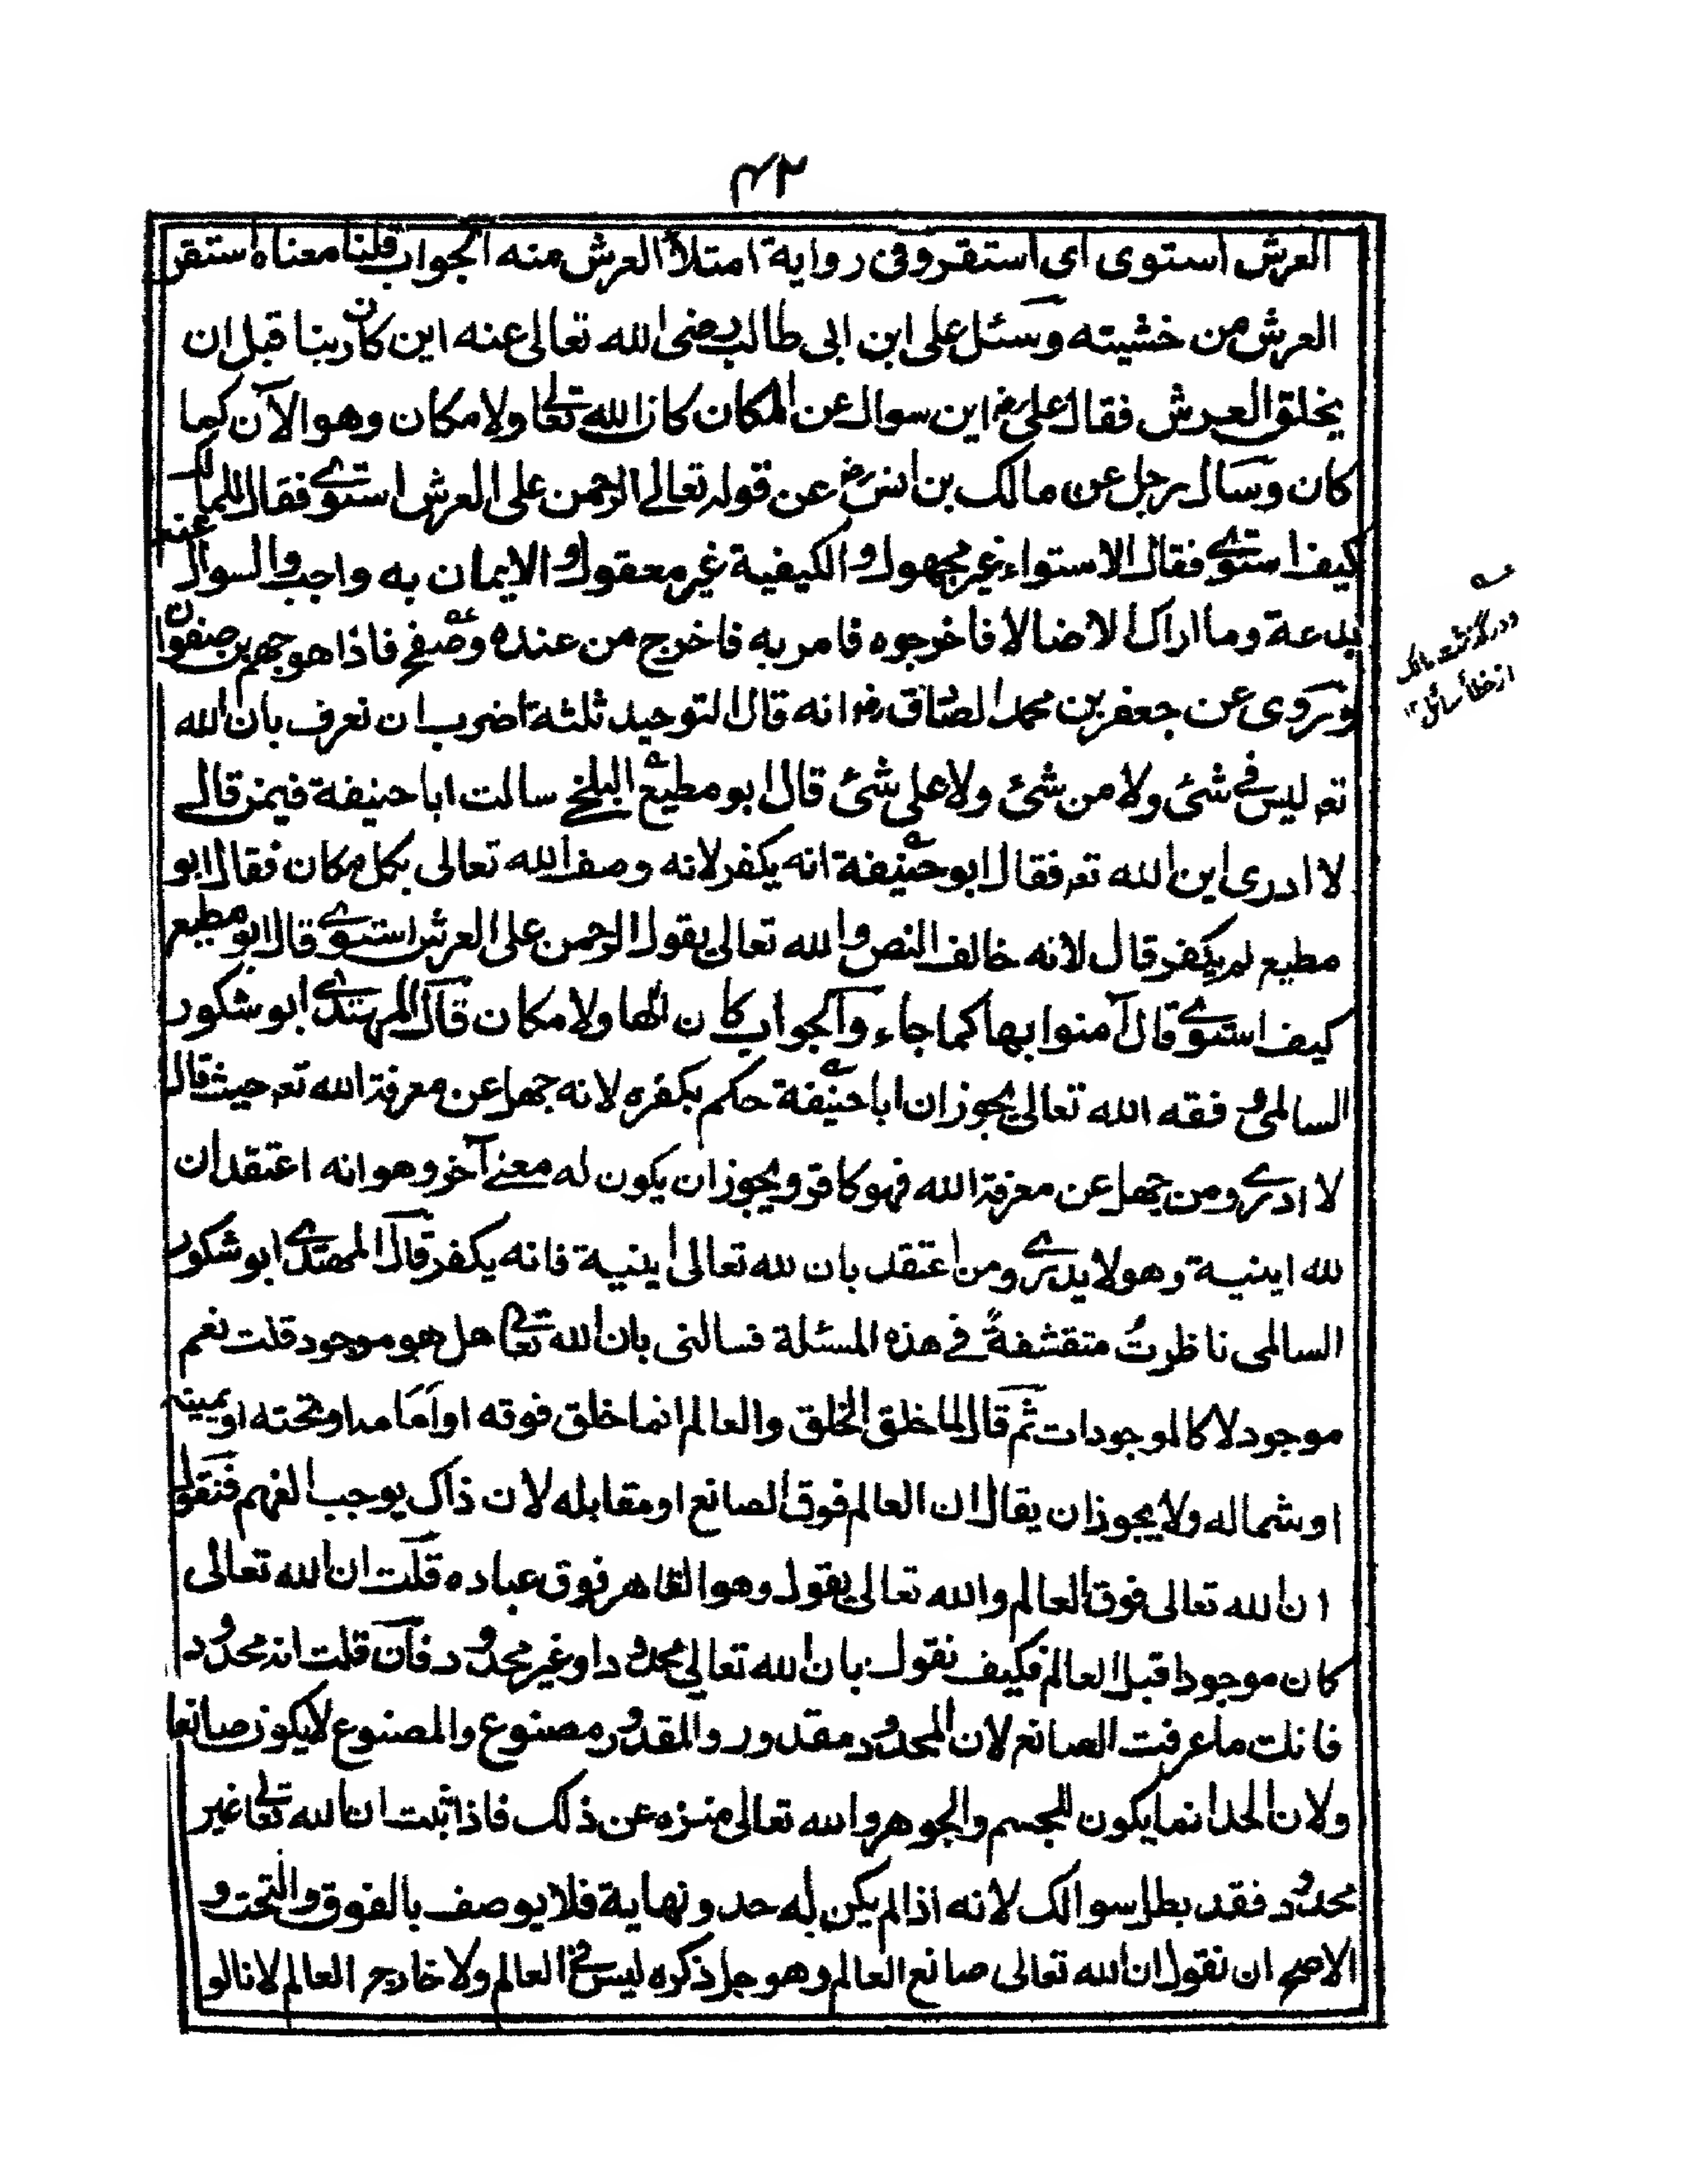 ۴۲
العرش استوى اى استقر وفى رواية امتلأ العرش منه الجواب قلنا معناه استقر
العرش من خشيته وسئل على ابن ابى طالب رضى الله تعالى عنه اين كان ربنا قبل ان
يخلق العرش فقال على رض اين سوال عن المكان كان الله تعالى ولا مكان وهو الآن كما
كان وسال رجل عن مالك بن انس رض عن قوله تعالى الرحمن على العرش استوى فقال المالك
كيف استوى فقال الاستواء غير مجهول والكيفية غير معقول والايمان به واجب والسوال عنه
بدعة وما اراك الا ضالا فاخرجوه فامر به فاخرج من عنده وصفح فاذا هو جهم بن صفوان
ويروى عن جعفر بن محمد الصادق رض انه قال التوحيد ثلثة اضرب ان نعرف بان الله
تعم ليس فى شئ ولا من شئ ولا على شئ قال ابو مطيع البلخى سالت ابا حنيفة فيمن قال
لا ادرى اين الله تعم فقال ابو حنيفة انه يكفر لانه وصف الله تعالى بكل مكان فقال ابو
مطيع لم يكفر قال لانه خالف النص والله تعالى يقول الرحمن على العرش استوى قال ابو مطيع
كيف استوى قال آمنوا بها كما جاء والجواب كان الٰها ولا مكان قال المهتدى ابو شكور
السالمى و فقه الله تعالى يجوز ان ابا حنيفة حكم بكفره لانه جهل عن معرفة الله تعم حيث قال
لا ادرى ومن جهل عن معرفة الله فهو كافر ويجوز ان يكون له معنى آخر وهو انه اعتقد ان
لله اينية وهو لا يدرى ومن اعتقد بان لله تعالى اينية فانه يكفر قال المهتدى ابو شكور
السالمى ناظرتُ متقشفةً فى هذه المسئلة فسالنى بان الله تعالى هل هو موجود قلت نعم
موجود لا كالموجودات ثم قال لما خلق الخلق والعالم انما خلق فوقه او امامه او تحته او يمينه
او شماله ولا يجوز ان يقال ان العالم فوق الصانع او مقابله لان ذاك يوجب الفهم فنقول
ان الله تعالى فوق العالم والله تعالى يقول وهو القاهر فوق عباده قلت ان الله تعالى
كان موجودا قبل العالم فكيف نقول بان الله تعالى محدودا وغير محدود فان قلت انه محدود
فانت ما عرفت الصانع لان المحدود مقدور والمقدور مصنوع والمصنوع لا يكون صانعا
ولان الحد انما يكون للجسم والجوهر والله تعالى منزه عن ذلك فاذا ثبت ان الله تعالى غير
محدود فقد بطل سوالك لانه اذا لم يكن له حد ونهاية فلا يوصف بالفوق والتحت و
الاصح ان نقول ان الله تعالى صانع العالم وهو جل ذكره ليس فى العالم ولا خارج العالم لانا لو
عسه
و درگذشت مالک
از خطا سائل ۱۲